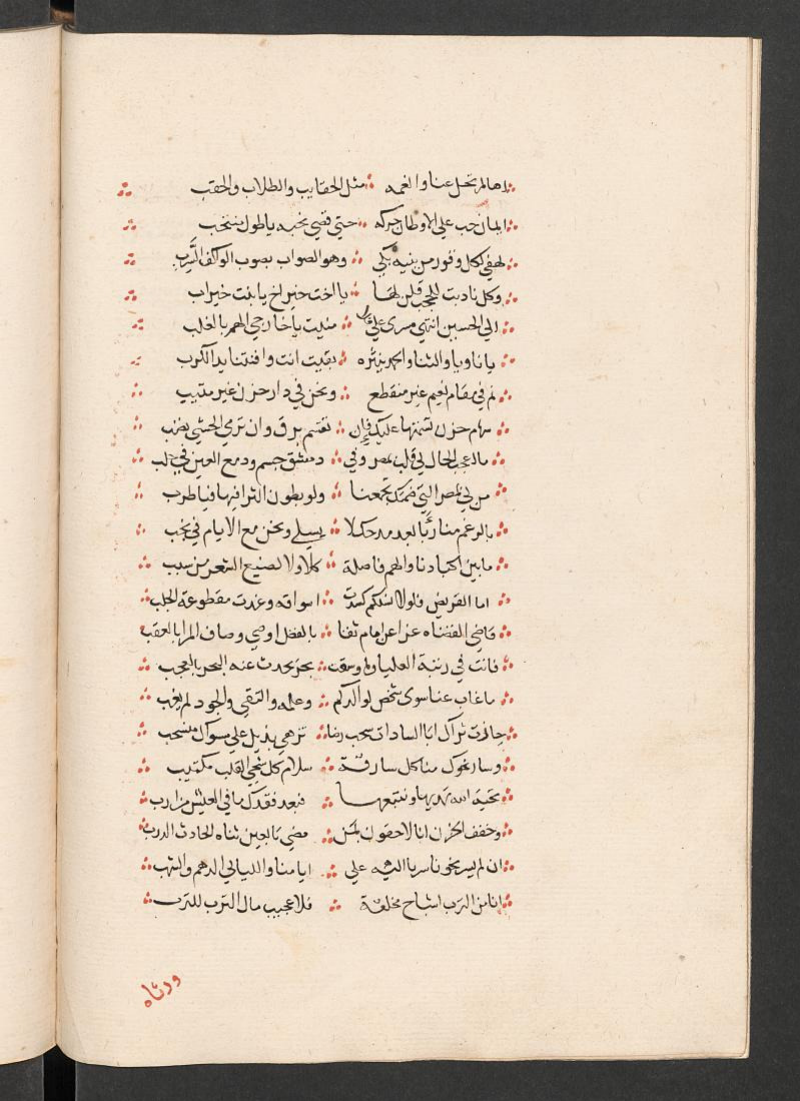 مثل الحقايب والطلاب والحقب
حب علي الاوطان حركه حتي قضي نحبه ياطول منتحب
لهفي لكل وقور من بنيه بكي وهو الصواب بصوب الواكف السرب
وكل نادبت للحجب قلن لها يا اخت خير اخ يا بنت خير اب
الي الحسين انتهي مسري علي مليت ياخارجي الهم بالغلب
يا ثاويا والثنا والحمد ينشره بقيت انت وافنتنا يد الكرب
نم في مقام نعيم غير منقطع ونحن في دار حزن غير متيب
سهام حزن عليك فان تقسم برق وان ترمي الحشي يصب
ما اعجب الحال لي قلب بمصر وفي دمشق جسم ودمع العين في حلب
من لي بمصر التي ضمتك تجمعنا ولو بطون الثرا فيها فيا طرب
بالرغم منا بعد مدحك لا يسلي ونحن مع الايام في نخب
ما بين اكبادنا والهم فاصلة كلا ولا لصنيع الشعر من سبب
اما القريض فلولا نسلكم كسدت اسواقه وغدت مقطوعة الجلب
قاضي القضاه عزا عن امام تقا بالفضل اوصي وصاف المرا بالعقب
فانت في رتبة العليا وما وسقت بحر يحدث عنه البحر بالعجب
ما غاب عنا سوي شخص لوالدكم وعلمه والتقي والجود لم يغب
جادت ثراك ابا السادات سحب رضا تزهي بذيل علي مثواك منسحب
وسار نحوك منا كل سارقة سلام كل شجي القلب مكتيب
تحية الله نهديها ونتبعها فبعد فقدك ما في العيش من ارب
وخفف الحزن انا لاحقون بمن مضي
ان لم يسر نحونا سرنا اليه علي ايامنا والليالي الدهم والشهب
انا من الترب اشباح مخلقة فلا عجيب مال الترب للترب
ورثاه